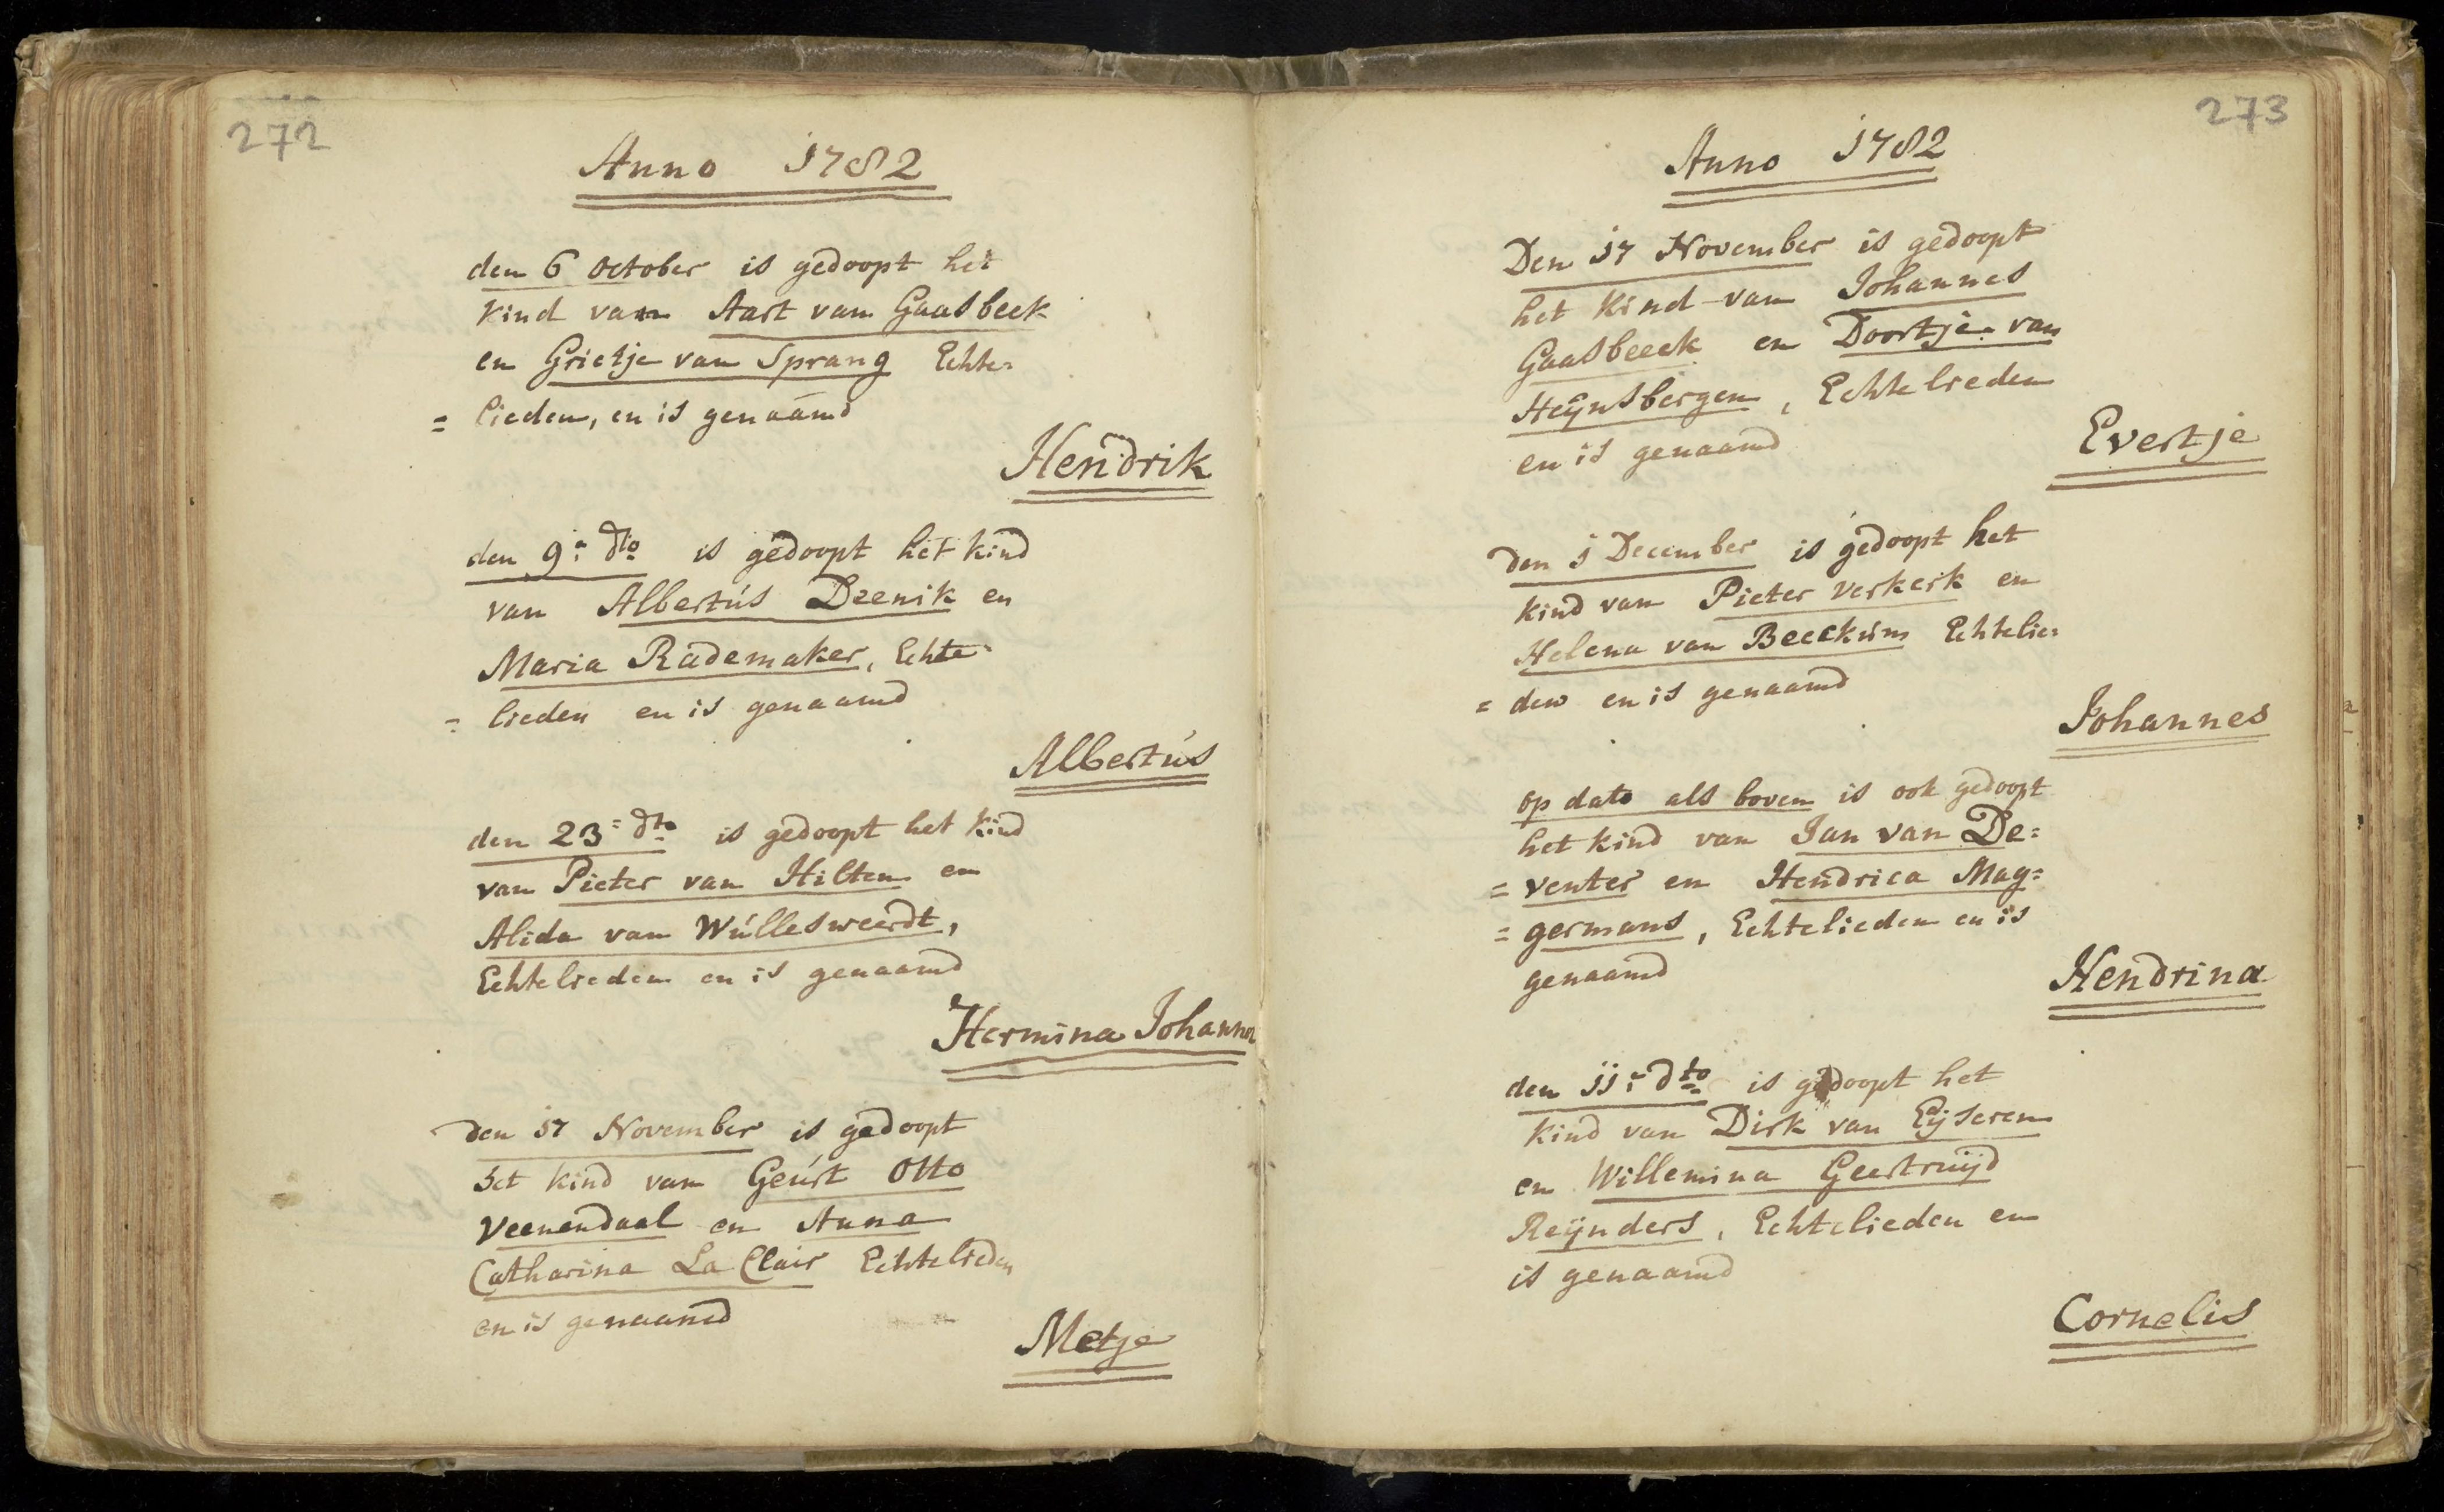 272
Anno 1782
den 6 October is gedoopt het
Kind van Aart van Gaasbeek
en Grietje van Sprang Echte=
= lieden, en is genaamd
Hendrik
den 9: dto is gedoopt het kind
van Albertús Dzenik en
Maria Rademaker, Echte
= lieden en is genaamd
Albertús
den 23= dto is gedoopt het Kind
van Pieter van Hilten en
Alida van Wúllesweerdt,
Echtelieden en is genaamd
Hermina Johanna
den 17 November is gedoopt
het kind van Geúrt Otto
Veenendaal en Anna
Catharina La Clair Echtelieden
en is genaamd
Metje
273
Anno 1782
Den 17 November is gedoopt
het Kind van Johannes
Gaasbeeck en Doortje van
Heÿnsbergen, Echtelieden
en is genaamd
Evertje
den 1 December is gedoopt het
kind van Pieter Verkerk en
Helena van Beeckúm Echtelie=
= den en is genaamd
Johannes
op dato als boven is ook gedoopt
het kind van Jan van De=
= venter en Hendrica Mag=
= germans, Echtelieden en is
genaamd
Hendrina
den 11: dto is gedoopt het
Kind van Dirk van Eÿseren
en Willemina Geertruijd
Reÿnders, Echtelieden en
is genaamd
Cornelis